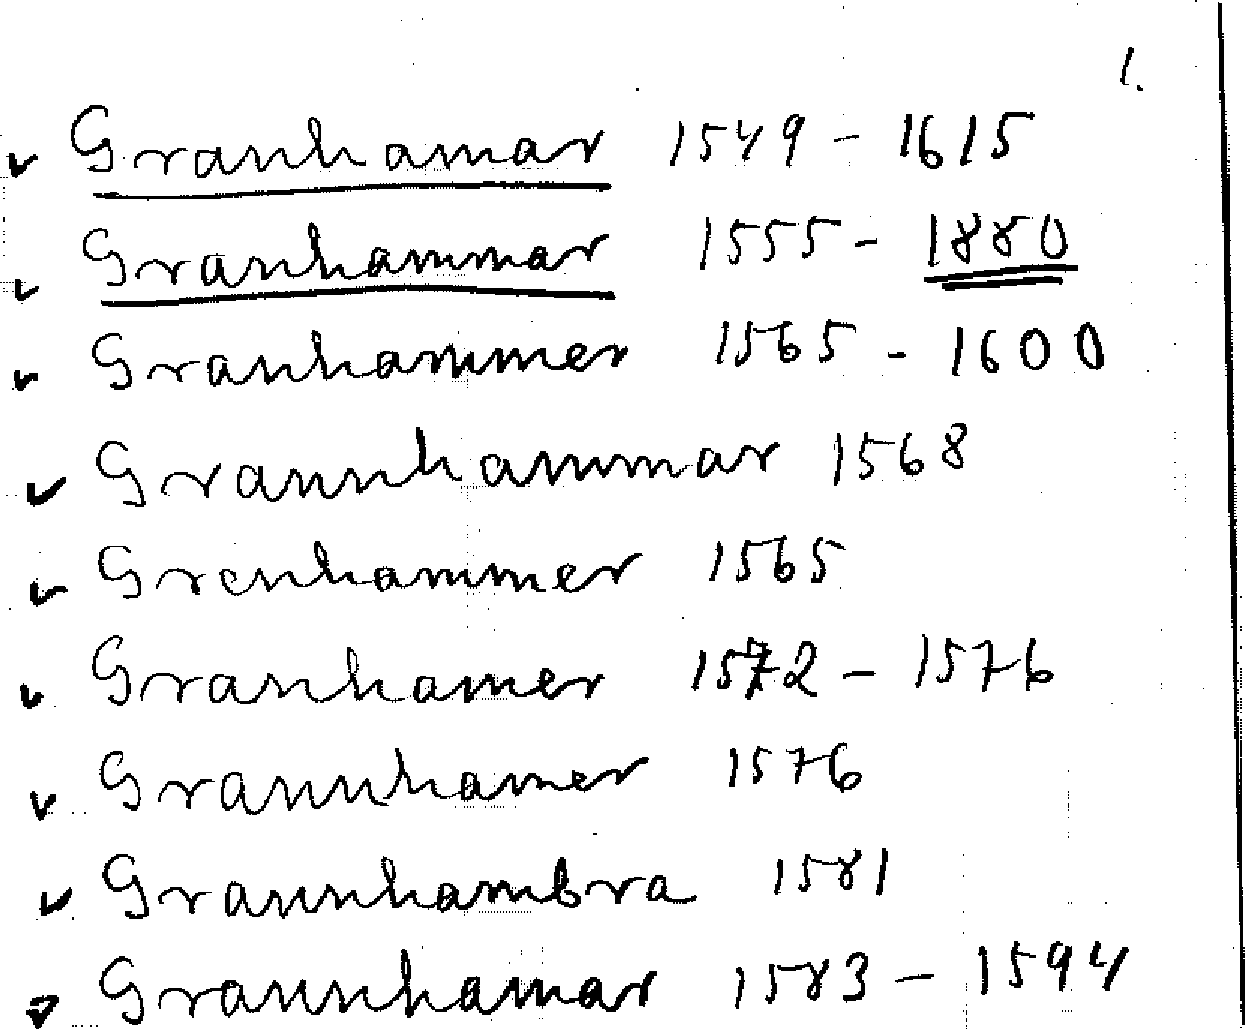 1.
Granhamar 1549 - 1615
Granhammar 1555 - 1880
Granhammer 1565 - 1600
Grannhammar 1568
Grenhammer 1565
Granhamer 1572 - 1576
Grannhamer 1576
Grannhambra 1581
Grannhamar 1583 - 1594